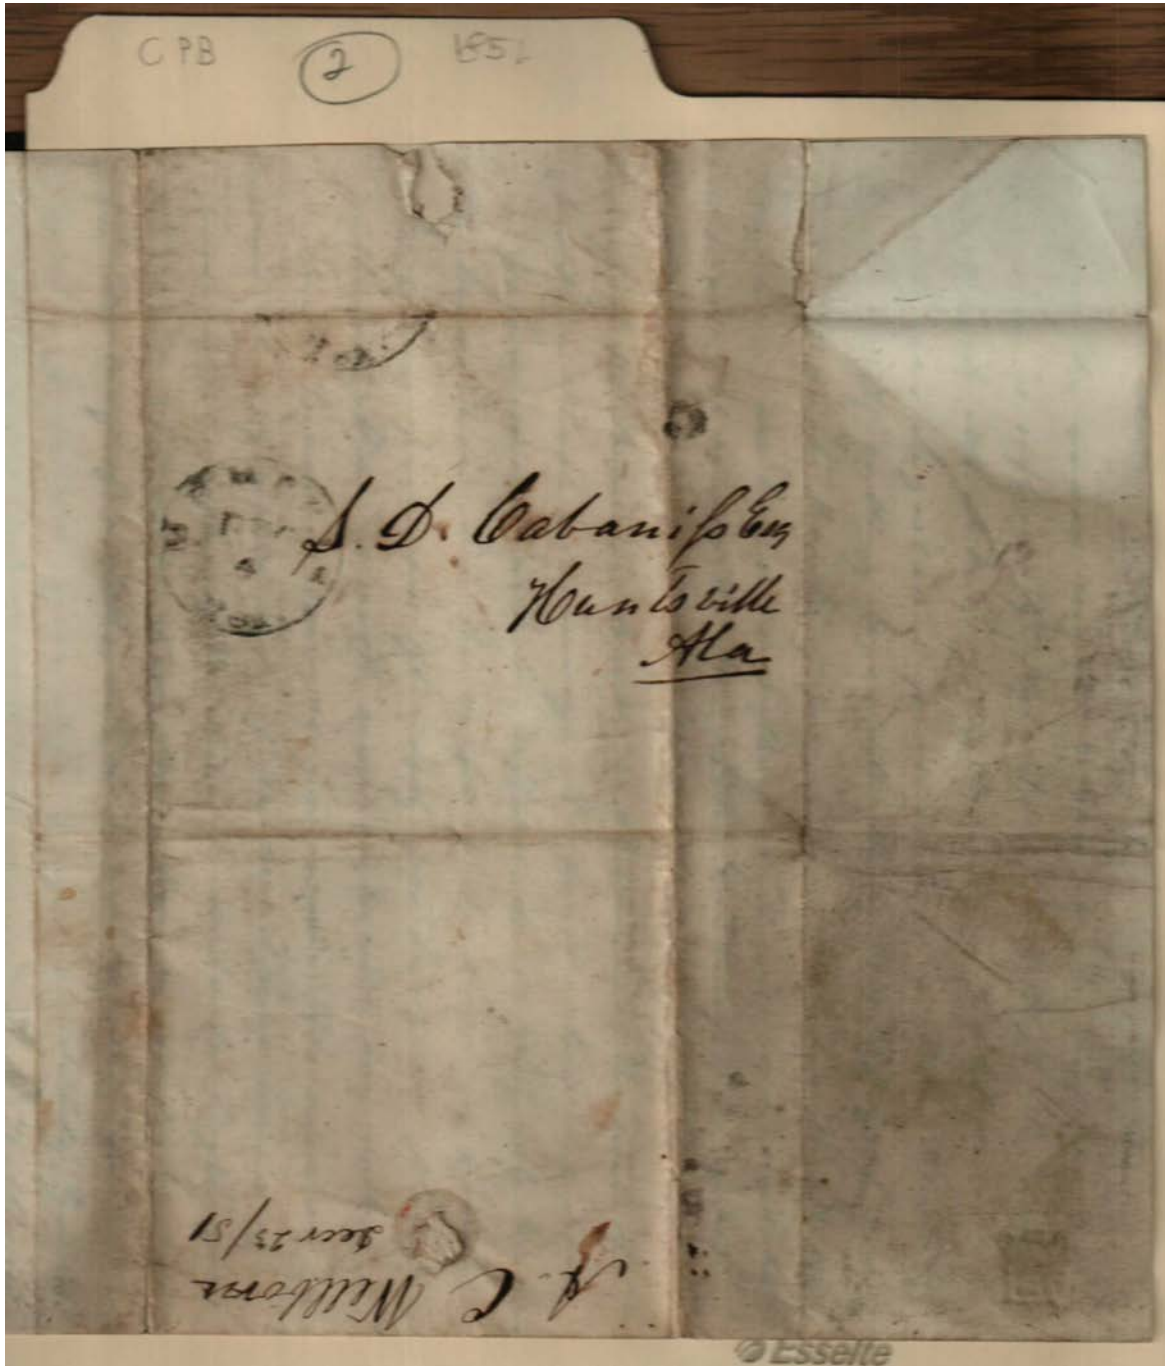 CPB 2 1851
S. D. Cabaniss Esq
Huntsville
Ala
A. C. Wellborn
Decr 23/51
Esselte